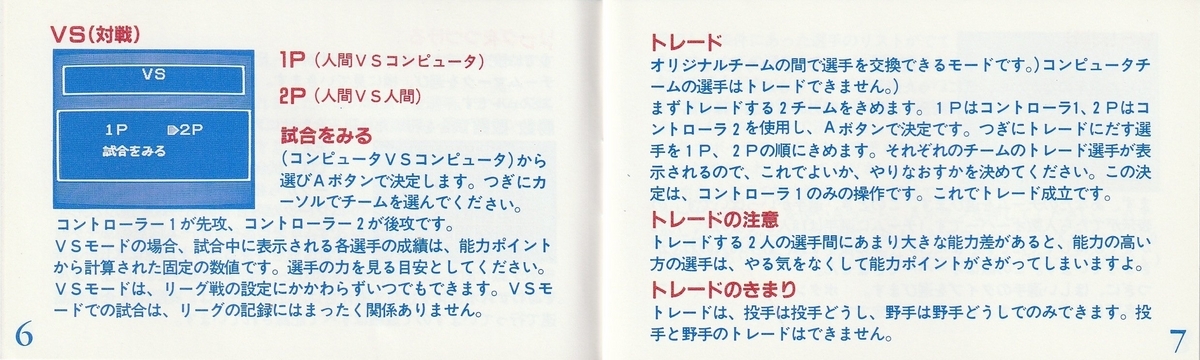 VS(対戦)
VS
1P 2P
試合をみる
1P (人間VSコンピュータ)
2P (人間VS人間)
試合をみる
(コンピュータVSコンピュータ)から
選びAボタンで決定します。つぎにカ
ーソルでチームを選んでください。
コントローラー1が先攻、コントローラー2が後攻です。
VSモードの場合、試合中に表示される各選手の成績は、能力ポイント
から計算された固定の数値です。選手の力を見る目安としてください。
VSモードは、リーグ戦の設定にかかわらずいつでもできます。VSモ
ードでの試合は、リーグの記録にはまったく関係ありません。
6
トレード
オリジナルチームの間で選手を交換できるモードです。)コンピュータチ
ームの選手はトレードできません。)
まずトレードする2チームをきめます。1Pはコントローラ1、2Pはコ
ントローラ2を使用し、Aボタンで決定です。つぎにトレードにだす選
手を1P、2Pの順にきめます。それぞれのチームのトレード選手が表
示されるので、これでよいか、やりなおすかを決めてください。この決
定は、コントローラ1のみの操作です。これでトレード成立です。
トレードの注意
トレードする2人の選手間にあまり大きな能力差があると、能力の高い
方の選手は、やる気をなくして能力ポイントがさがってしまいますよ。
トレードのきまり
トレードは、投手は投手どうし、野手は野手どうしでのみできます。投
手と野手のトレードはできません。
7